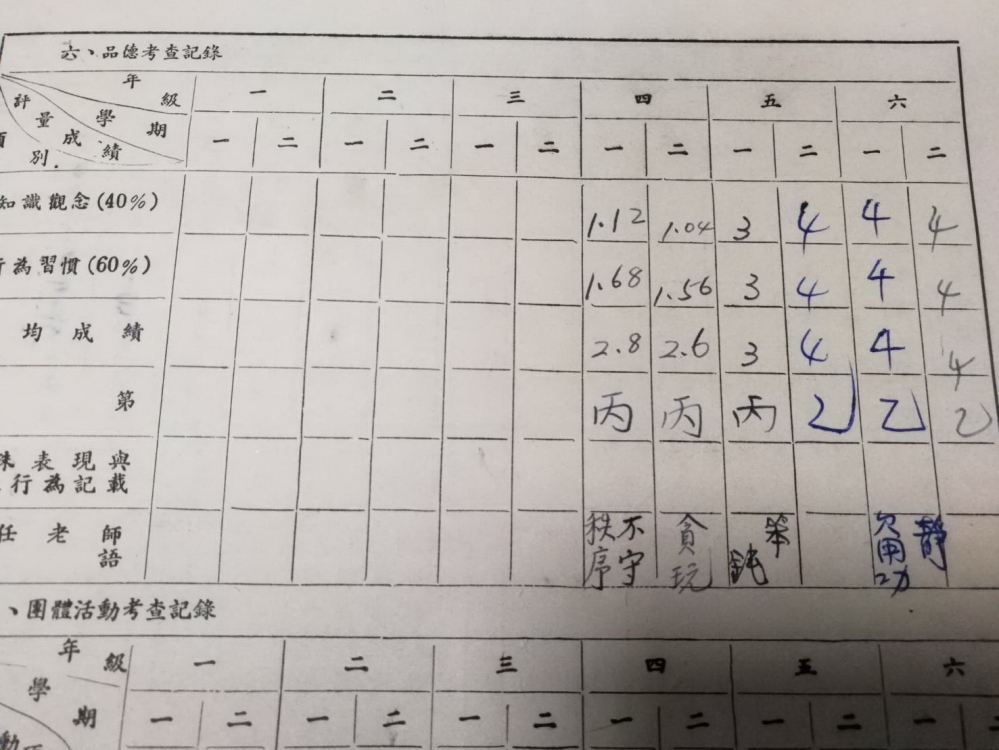 六、品德考查記錄
年級 一 二 三 四 五 六
學期 一 二 一 二 一 二 一 二 一 二 一 二
評量成績
別
知識觀念(40%) 1.12 1.04 3 4 4 4
行為習慣(60%) 1.68 1.56 3 4 4 4
均成績 2.8 2.6 3 4 4 4
第 丙 丙 丙 乙 乙 乙
殊表現與
行為記載
任老師
語
不守秩序 貪玩 笨鈍 靜欠用功
、團體活動考查記錄
年級 一 二 三 四 五 六
學期 一 二 一 二 一 二 一 二 一 二 一
動